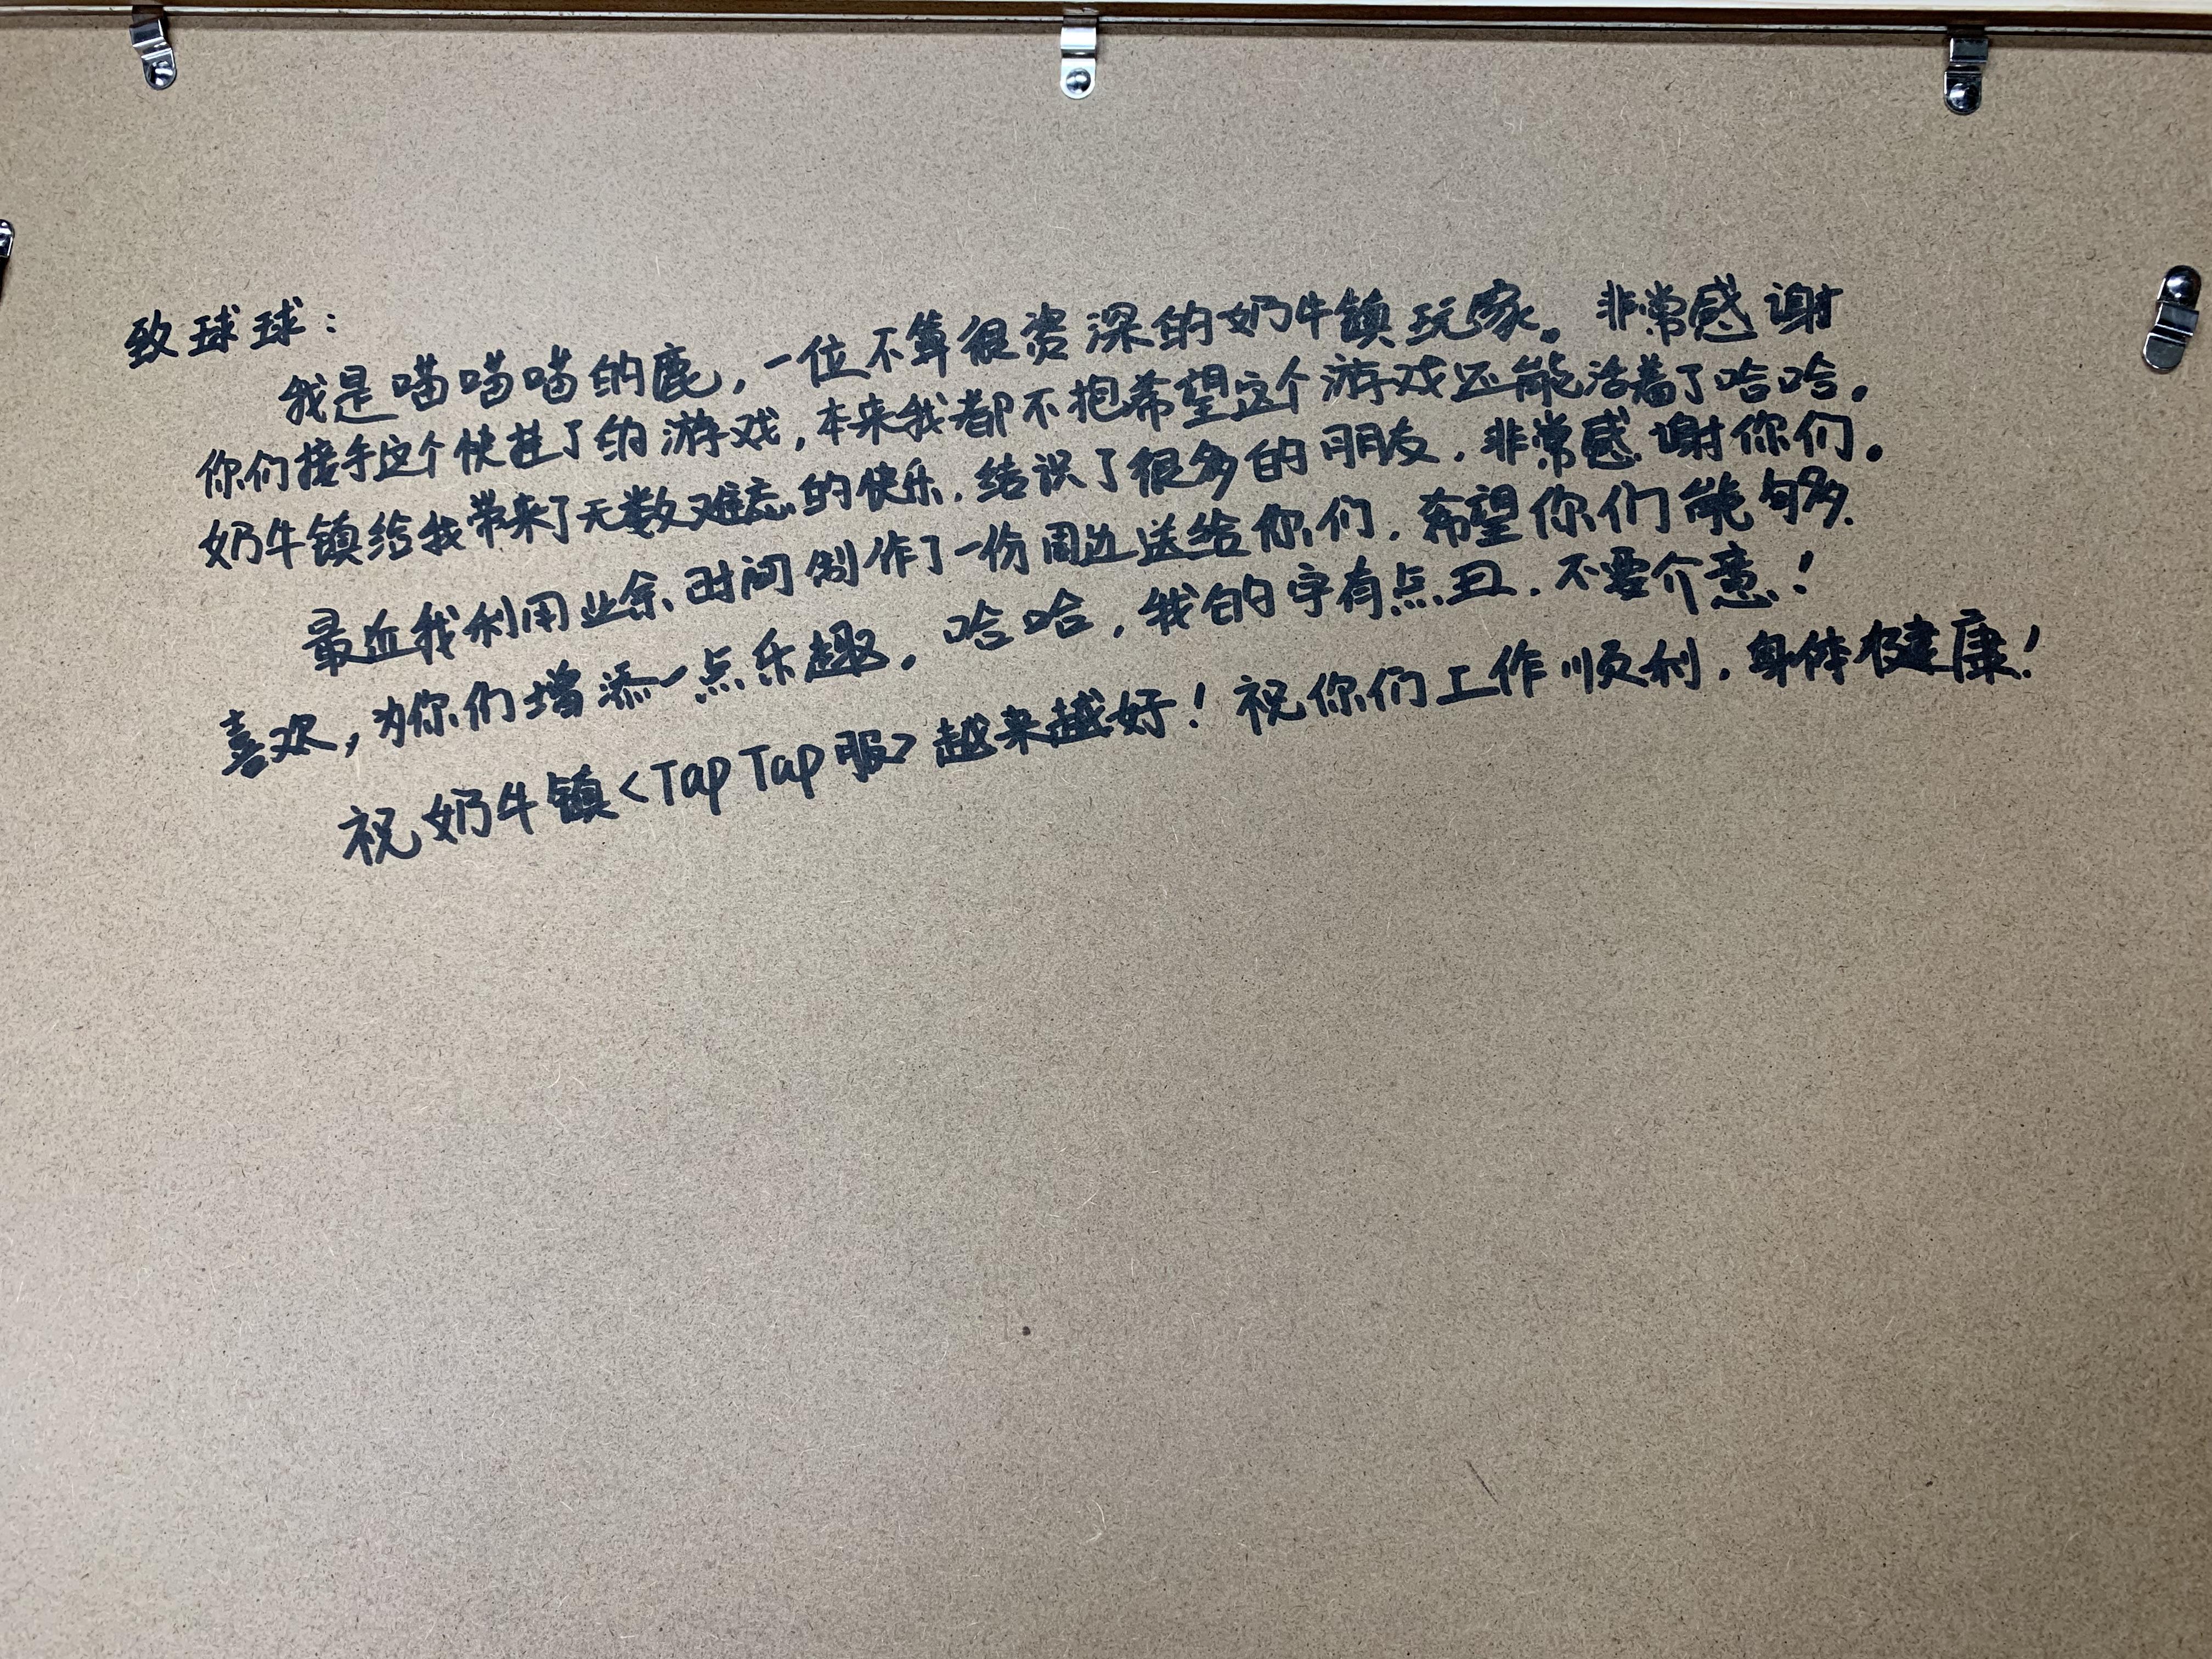 致球球：
我是喵喵喵的鹿，一位不算很资深的奶牛镇玩家。非常感谢
你们接手这个快挂了的游戏，本来我都不抱希望这个游戏还能活着了哈哈。
奶牛镇给我带来了无数难忘的快乐，结识了很多的朋友，非常感谢你们。
最近我利用业余时间制作了一份周边送给你们，希望你们能够
喜欢，为你们增添一点乐趣。哈哈，我的字有点丑，不要介意！
祝奶牛镇<TapTap服>越来越好！祝你们工作顺利，身体健康！